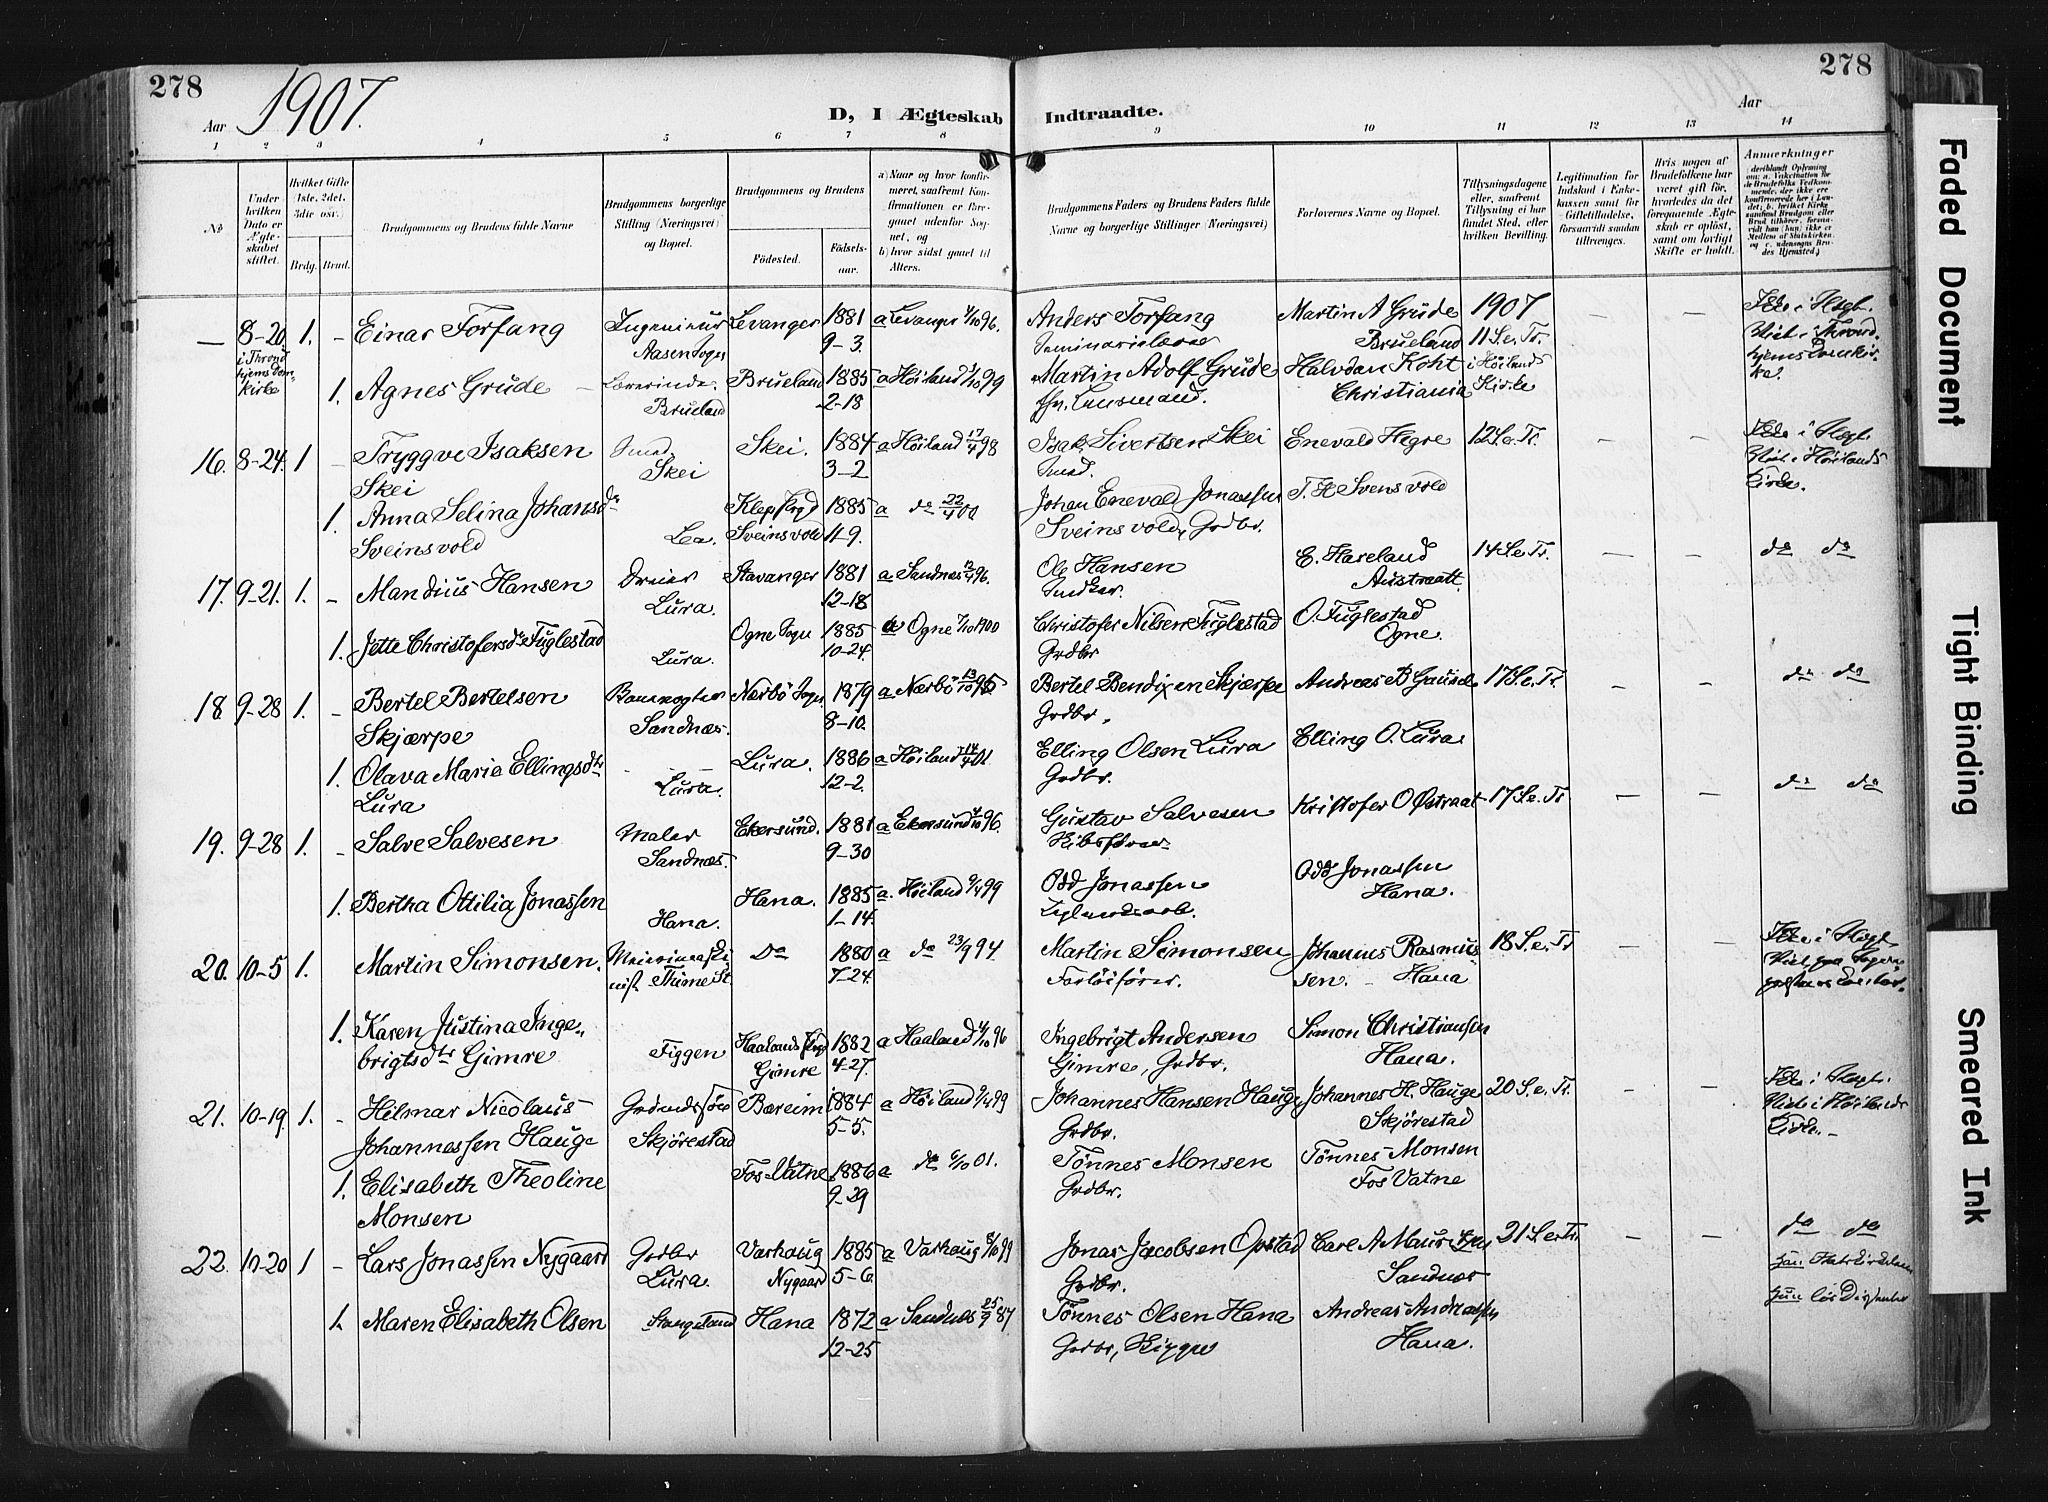 278
1907.
D, I Ægteskab
Indtraadte.
278
Aar
Aar
1 2 3 4 5 6 7 8 9 10 11 12 13 14
№
Under hvilken Dato er Ægteskabet stiftet.
Hvilket Gifte (1ste, 2det, 3die osv.)
Brdg. Brud.
Brudgommens og Brudens fulde Navne
Brudgommens borgerlige Stilling (Næringsvei) og Bopæl.
Brudgommens og Brudens
Fødested.
Fødselsaar.
a) Naar og hvor konfirmeret, saafremt Konfirmationen er foregaaet udenfor Sognet, og
b) hvor sidst gaaet til Alters.
Brudgommens Faders og Brudens Faders fulde Navne og borgerlige Stillinger (Næringsvei)
Forlovernes Navne og Bopæl.
Tillysningsdagene eller, saafremt Tillysning ei har fundet Sted, efter hvilken Bevilling.
Legitimation for Indskud i Enkekassen samt for Giftetilladelse, forsaavidt saadan tiltrænges.
Hvis nogen af Brudefolkene har været gift før, hvorledes da det foregaaende Ægteskab er opløst, samt om lovligt Skifte er holdt.
Anmerkninger
— 8-20 1. – Einar Torfang Ingeniør Levanger 1881 a Levanger 1/10 96. Anders Torfang Martin A Grude 1907 — —
i Thrond hjems Domkirke Aasen Sogn 9-3. Seminarielærer Brueland 11 S.e.Tr.
1. Agnes Grude – Lærerinde. Brueland 1885 a Høiland 1/10 99 Martin Adolf Grude Halvdan Koht i Høilands
Brueland 2-18 fhv. Lensmand. Christiania Kirke
16. 8-24. 1 – Tryggve Isaksen Smed Skei. 1884 a Høiland 17/4 98 Isak Sivertsen Skei Enevald Hegre 12 S.e.Tr. – –
Skei Skei 3-2 Smed. i Høilands Kirke.
1. Anna Selina Johansdr Klep 1885 a do 22/4 00 Johan Enevald Jonassen T. H Svensvold
Sveinsvold Lea. Sveinsvold 11-9. Sveinsvold, Grdbr.
17. 9-21. 1. – Mandius Hansen Dreier Stavanger 1881 a Sandnes 12/4 96. Ole Hansen E. Haseland 14 S.e.Tr. — — do do
Lura. 12-18 Snedker. Austraatt
1. Jette Christofersdr Fuglestad Ogne Sogn 1885 a Ogne 7/10 1900 Christofer Nilsen Fuglestad O. Fuglestad
Lura. 10-24. Grdbr Ogne.
18. 9-28 1. – Bertel Bertelsen Nærbø Sogn 1879 a Nærbø 13/10 95 Bertel Bendixen Skjærpe Andreas B Gausel 17 S.e.Tr. – – do do
Skjærpe Sandnæs. 8-10. Grdbr.
1. Olava Marie Ellingsdtr Lura. 1886 a Høiland 14/4 01 Elling Olsen Lura Elling O. Lura.
Lura Lura. 12-2. Grdbr.
19. 9-28 1. – Salve Salvesen Maler Ekersund. 1881 a Ekersund 4/10 96. Gustav Salvesen Kristofer O Østraat 17 S.e.Tr — — do do
Sandnæs. 9-30
1. Bertha Ottilia Jonassen Hana. 1885 a. Høiland 9/4 99 Odd Jonassen Odd Jonassen
Hana. 1-14. Hana.
20. 10-5 1. Martin Simonsen. Do 1880 a do 23/9 94 Martin Simonsen Johannes Rasmus- 18 S.e.Tr – –
Time St. 7-24. sen. – Hana
1. Karen Justina Inge- Haalands 1882 a Haaland 4/10 96 Ingebrigt Andersen Simon Christiansen
brigtsdtr Gimre Figgen Gimre 4-27. Gimre, Grdbr. Hana.
21. 10-19. 1. – Hilmar Nicolaus Bæreim 1884 a Høiland 9/4 99 Johannes Hansen Hauge Johannes H. Hauge 20 S.e.Tr. – –
Johannessen Hauge Skjørestad 5-5. Grdbr. Skjørestad
1. Elisabeth Theoline Fos-Vatne 1886 a do 6/10 01. Tønnes Monsen Tønnes Monsen
Monsen 9-29 Grdbr. Fos Vatne
22. 10-20 1 – Lars Jonassen Nygaard Grdbr Varhaug 1885 a Varhaug 8/10 99 Jonas Jacobsen Opstad 21 S.e.Tr. – – do do
Lura. Nygaard 5-6. Grdbr. Sandnæs
1. Maren Elisabeth Olsen Stangeland Hana 1872 a Sandnæs 25/9 87 Tønnes Olsen Hana Andreas Andreassen
12-25 Grdbr, Hana.
Faded Document
Tight Binding
Smeared Ink